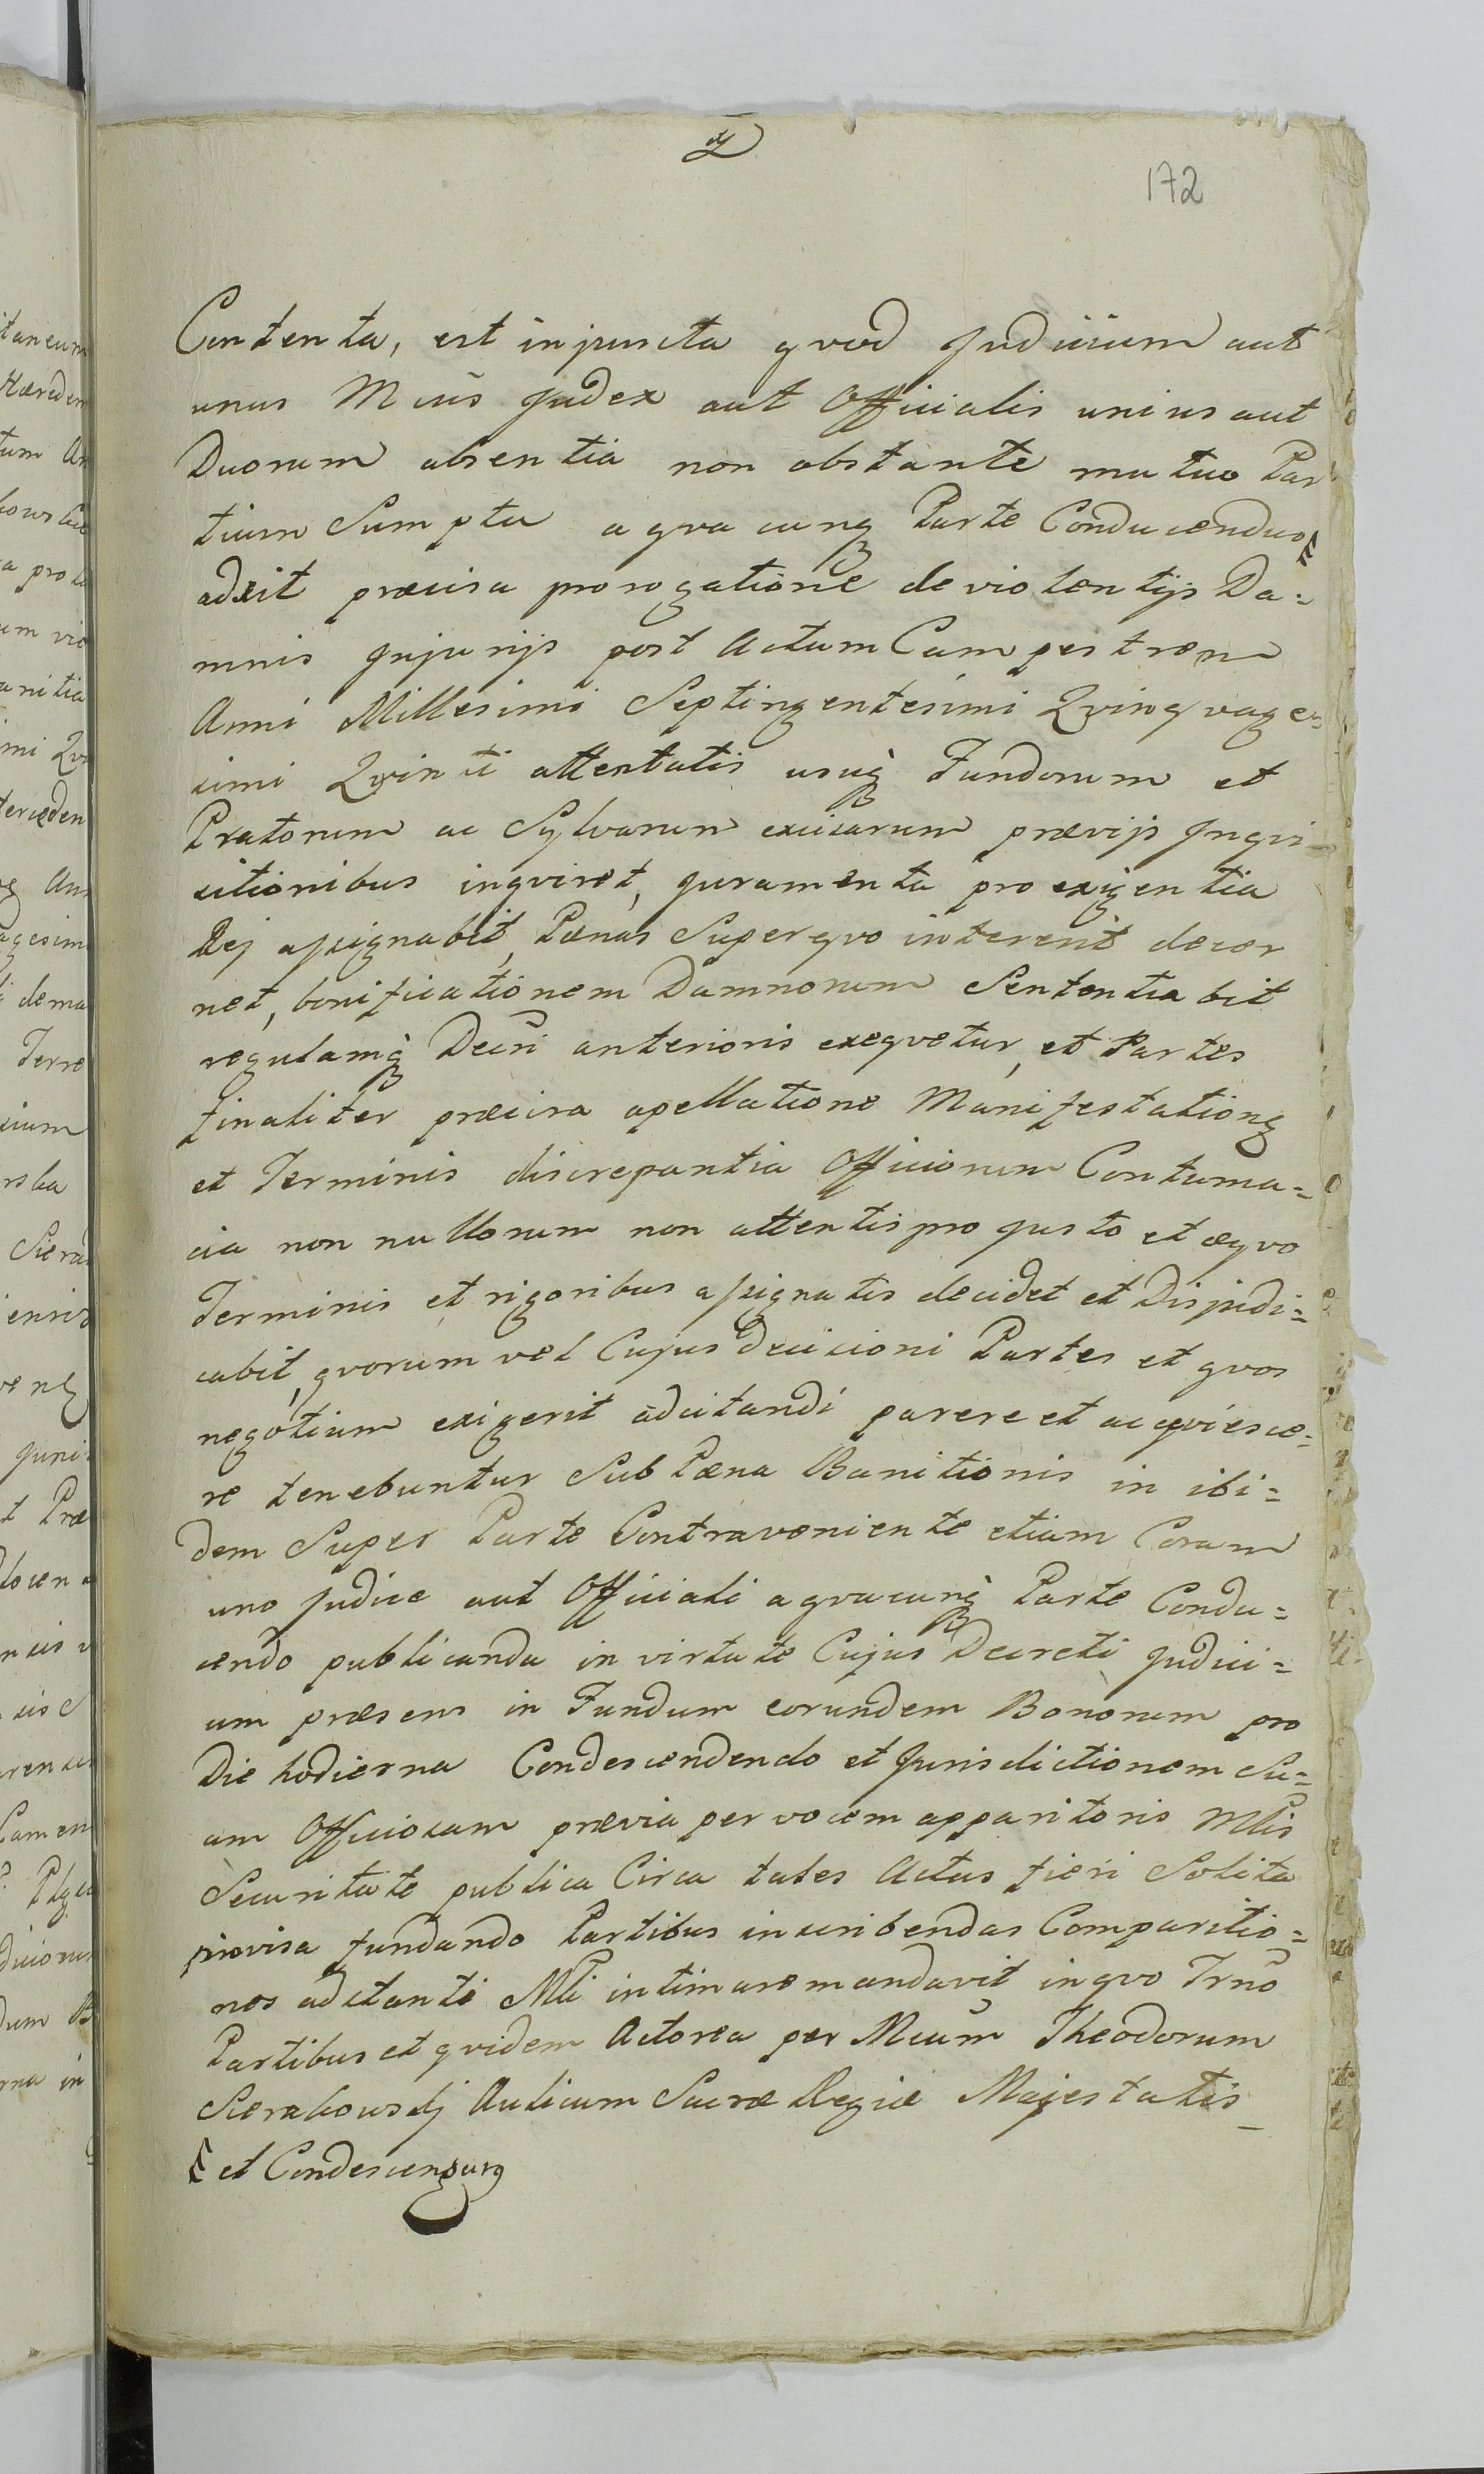 172
Contenta, est injuncta qvod Judicium aut
unus Mcus Judex aut Officialis unius aut
Duorum absentia non obstante mutuo Par
tium Sumptu a qva cunq Parte Conducendus
adsit præcisa prorogatione de violentijs Da=
mnis Injurijs post Actum Campestrem
Anni Millesimi Septingentesimi Qvinqvage=
simi Qvinti attentatis usuq Fundorum et
Pratorum ac Sylvarum excisarum prævijs Inqvi=
sitionibus inqviret, Juramenta pro exigentia
Rej assignabit, Pænas Superqvo intererit decer
net, bonificationem Damnorum Sententiabit
regulamq Decri anterioris exeqvetur, et Partes
finaliter præcisa apellatione Manifestationeq
et Terminis discrepantia Officiorum Contuma=
cia non nullorum non attentis pro Justo et æqvo
Terminis et rigoribus assignatis decidet et Disjudi=
cabit, qvorum vel Cujus Decisioni Partes et qvos
negotium exigerit adcitandi parere et acqviesce=
re tenebuntur Sub Pæna Banitionis in ibi=
dem Super Parte Contraveniente etiam Coram
uno Judice aut Officiali a qvacunq Parte Condu=
cendo publicanda in virtute Cujus Decreti Judici=
um præsens in Fundum eorundem Bonorum pro
Die hodierna Condescendendo et Jurisdictionem Su=
am Officiosam prævia per vocem apparitoris Mlis
Securitate publica Circa tales Actus fieri Solita
provisa fundando Partibus inscribendas Comparitio=
nes adstanti Mli intimare mandavit, in qvo Trno
Partibus et qvidem Actorea per Mcum Theodorum
Sierakowskj Aulicum Sacræ Regiæ Majestatis
et Condescensurq